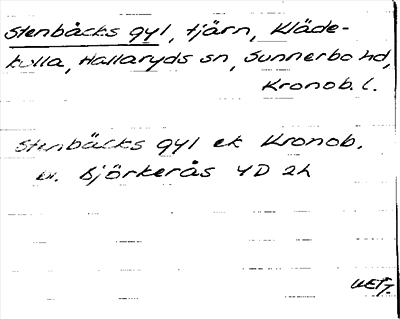 Stenbäcks gyl, tjärn, Kläde-
kulla, Hallaryds sn, Sunnerbo hd,
Kronob. l.
Stenbäcks gyl ek Kronob.
bl. Björkerås 4D 2h